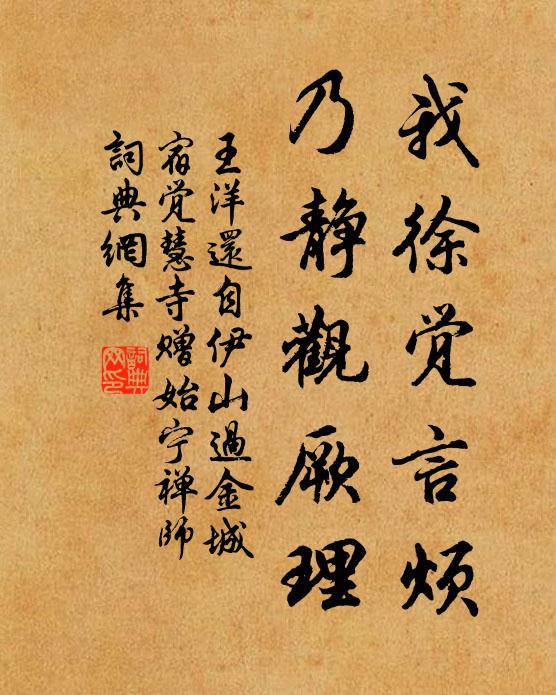 我徐觉言烦
乃静觀厥理
王洋還自伊山過金城
宿觉慧寺赠始宁禅师
詞典網集
詞典網印